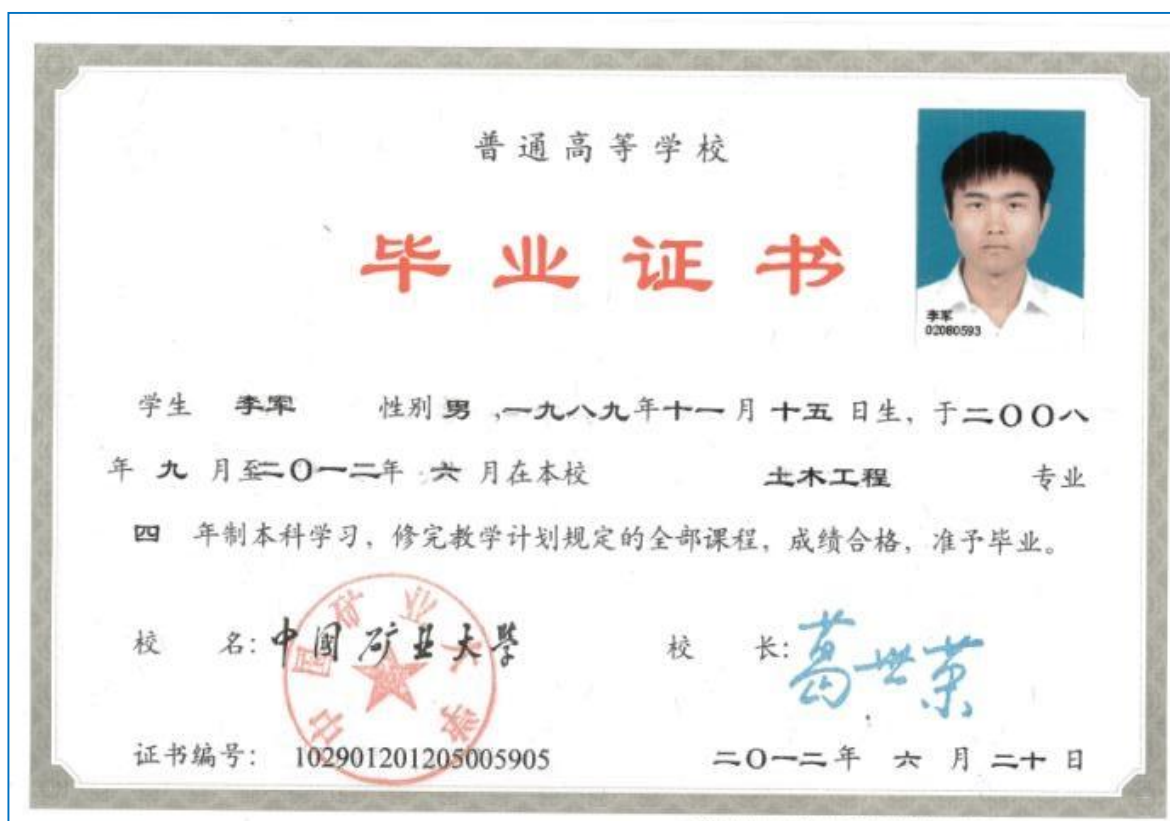 普通高等学校
毕业证书
李军
02080593
学生 李军 性别 男 ,一九八九年十一月十五日生, 于二〇〇八
年九月至二〇一二年六月在本校 土木工程 专业
四 年制本科学习, 修完教学计划规定的全部课程, 成绩合格, 准予毕业。
校 名: 中國矿业大學 校 长: 葛世荣
中国矿业大学
证书编号: 102901201205005905 二〇一二年 六 月 二十 日